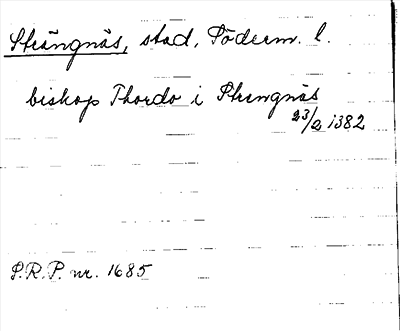 Strängnäs, stad, Söderm. l.
biskop Thordo i Strengnäs
23/2 1382
S.R.P. nr. 1685